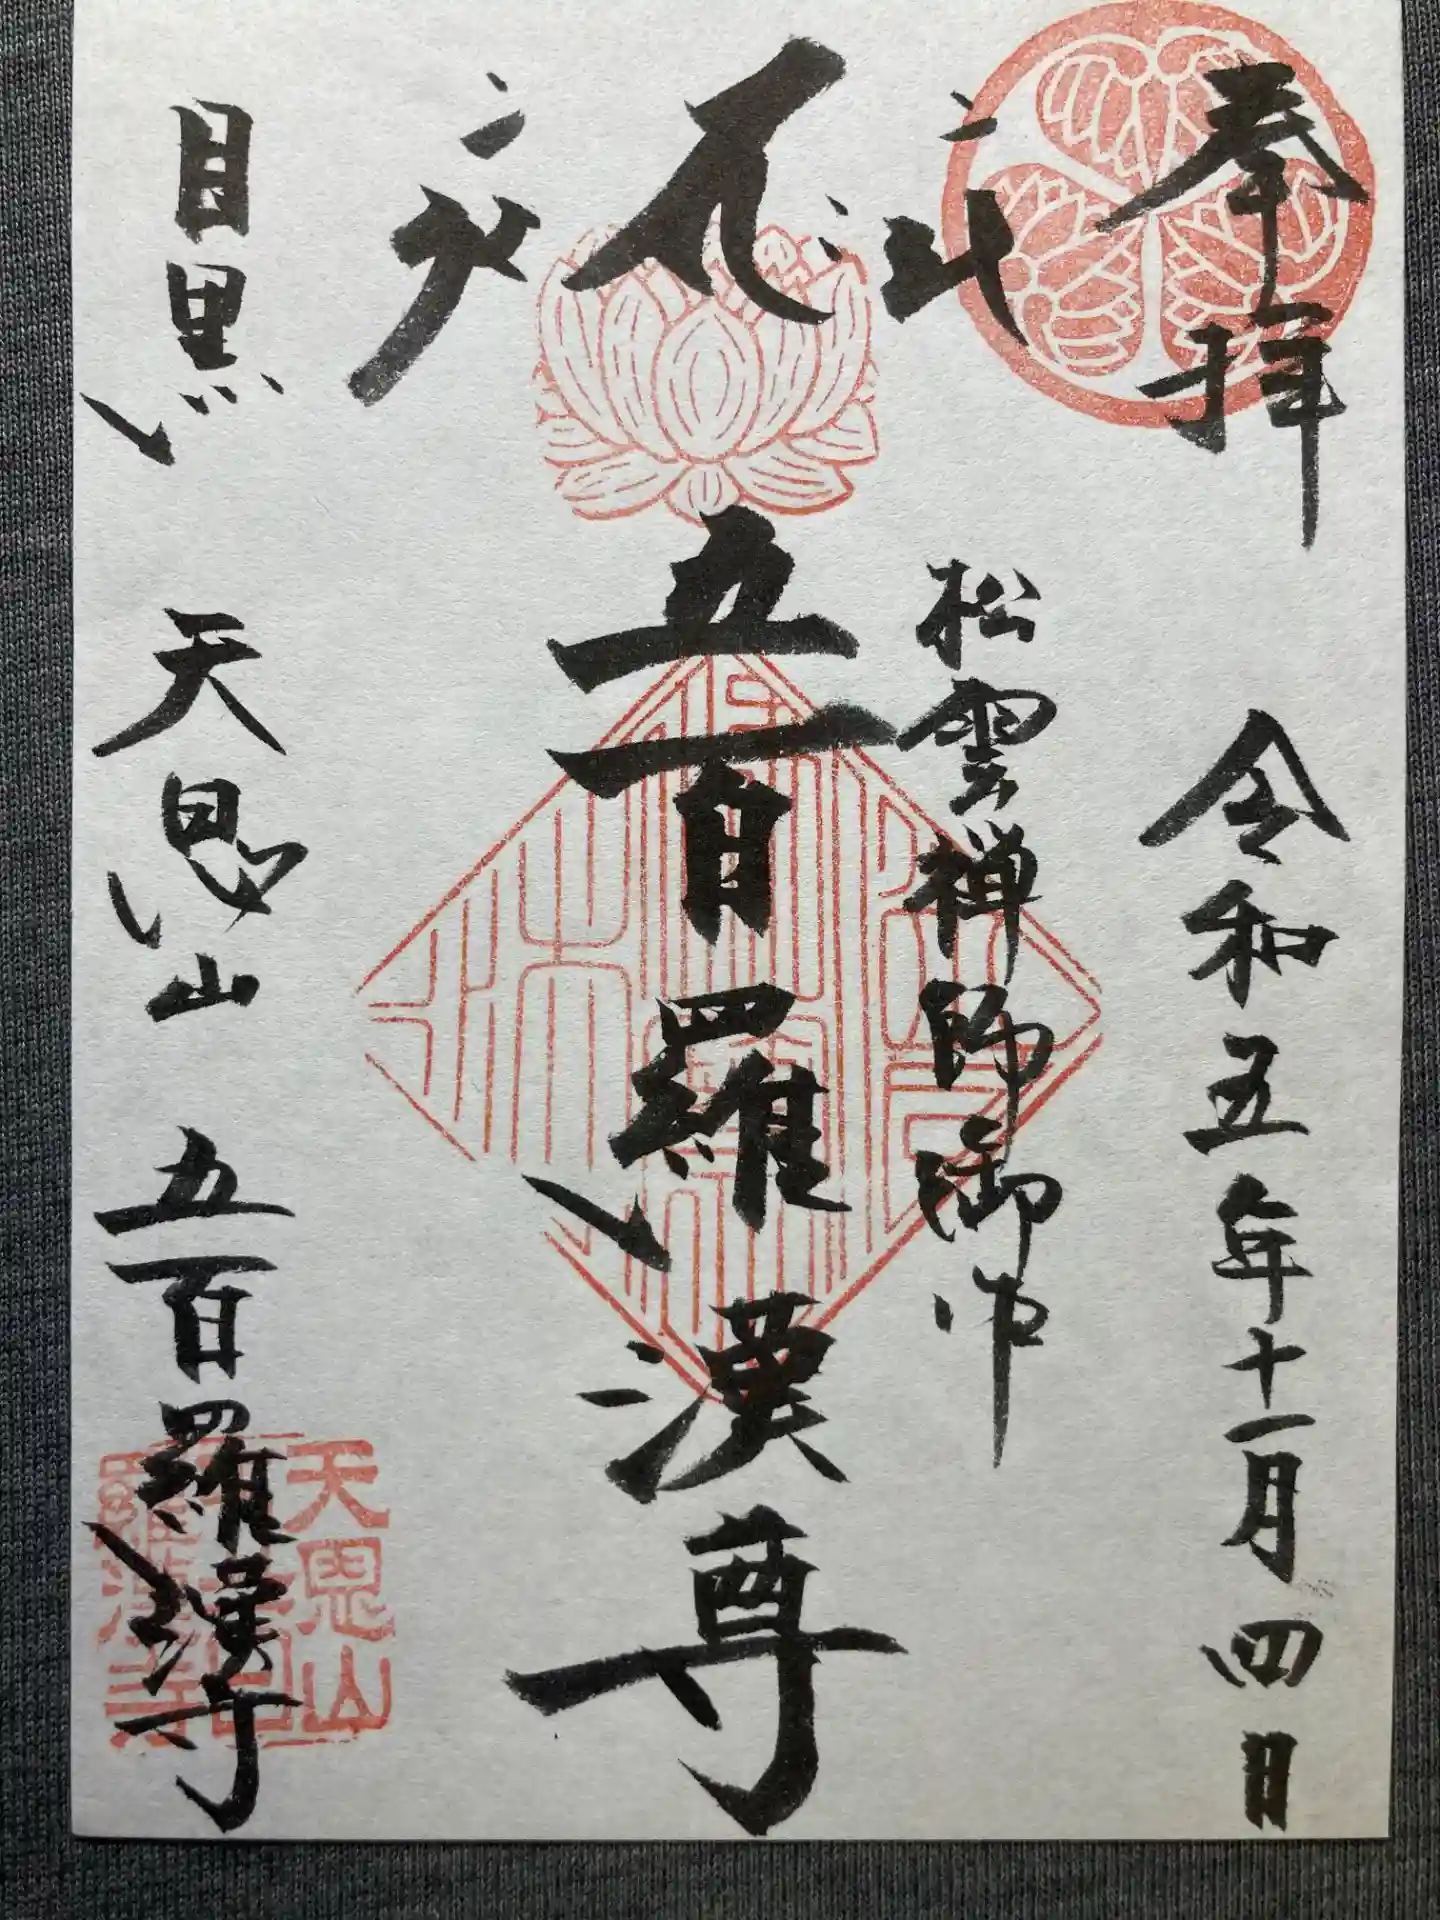 奉拝
令和五年十一月四日
松雲禅師御印
五百羅漢尊
目黒
天恩山
五百羅漢寺
天恩山
五百
羅漢寺